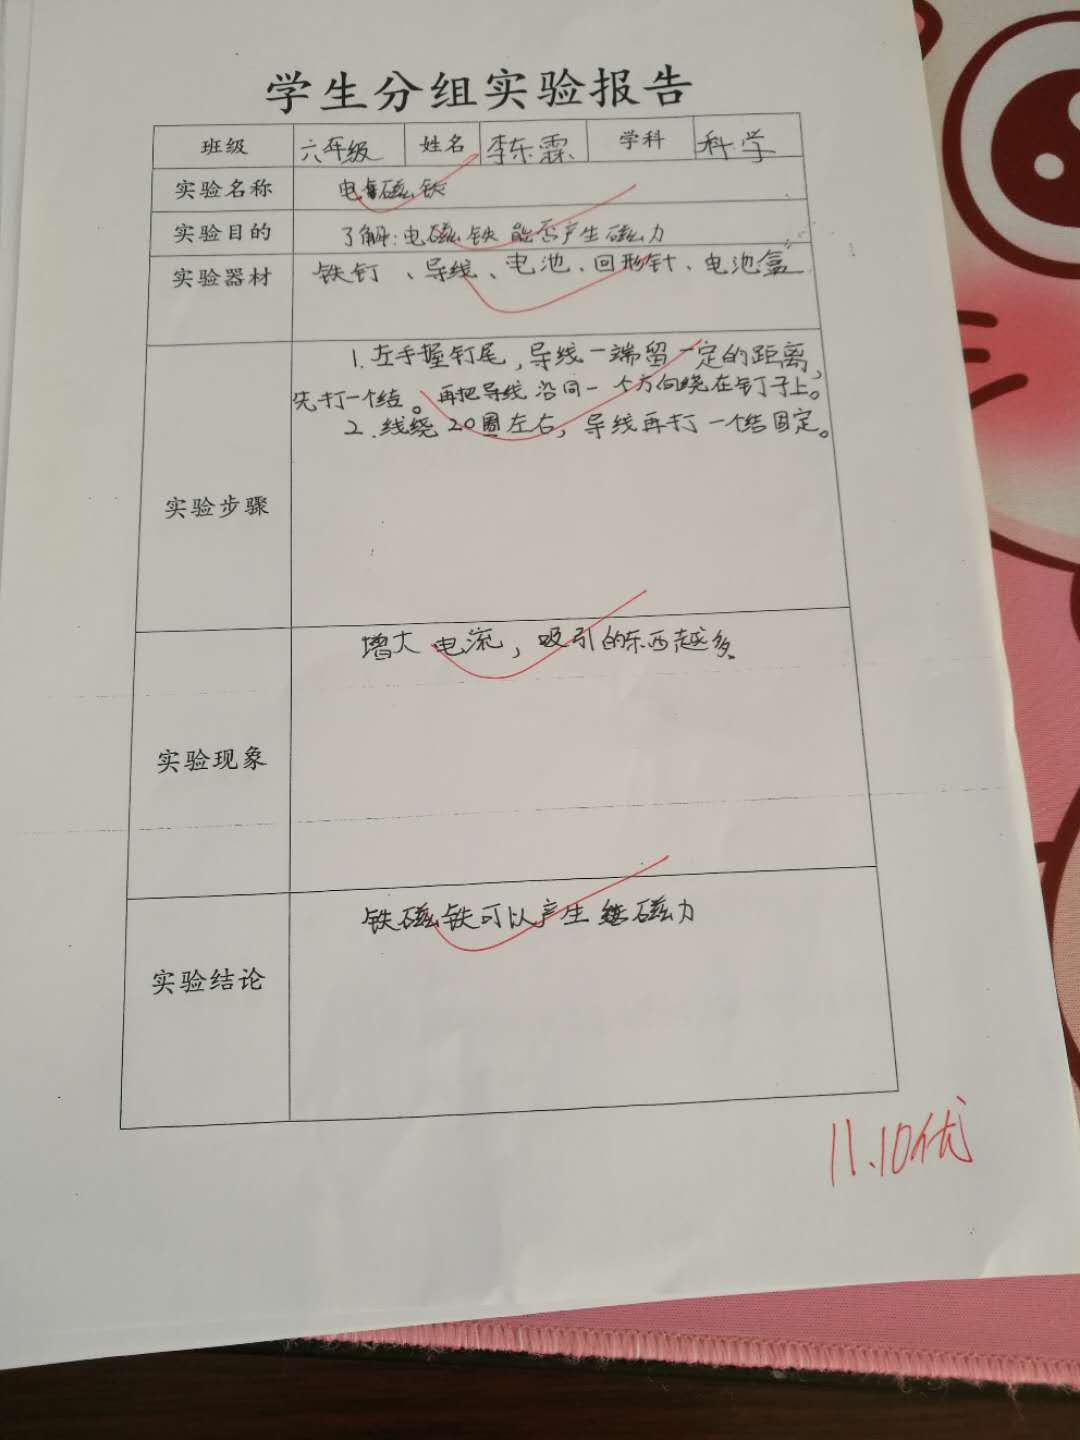 学生分组实验报告
班级 六年级 姓名 李东霖 学科 科学
实验名称 电磁铁
实验目的 了解:电磁铁能否产生磁力
实验器材 铁钉、导线、电池、回形针、电池盒
1.左手握钉尾,导线一端留一定的距离,
先打一个结。再把导线沿同一个方向绕在钉子上。
2.线绕20圈左右,导线再打一个结固定。
实验步骤
增大电流,吸引的东西越多。
实验现象
铁磁铁可以产生磁力
实验结论
11.10优